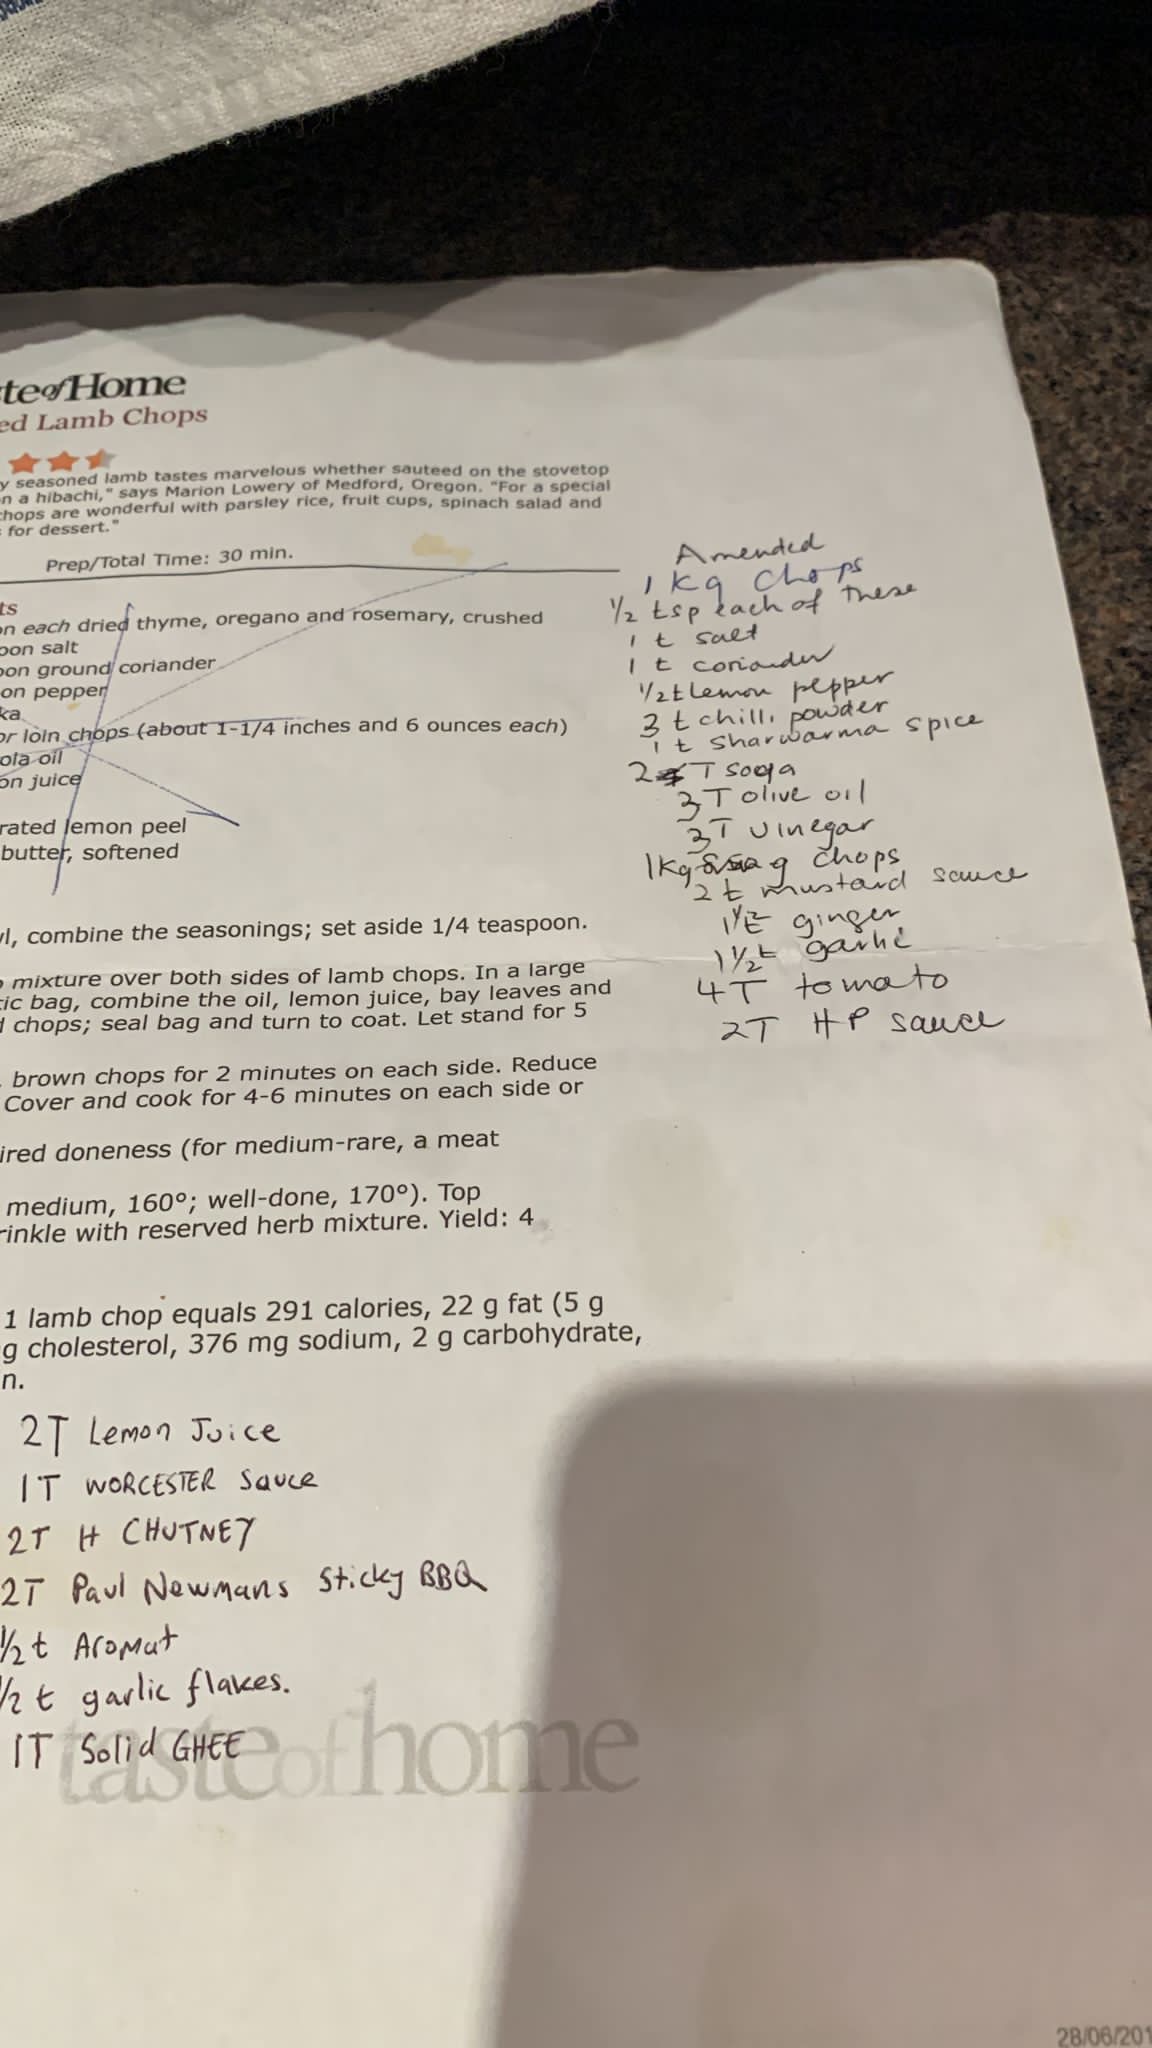 te of Home
ed Lamb Chops
y seasoned lamb tastes marvelous whether sauteed on the stovetop
n a hibachi," says Marion Lowery of Medford, Oregon. "For a special
chops are wonderful with parsley rice, fruit cups, spinach salad and
for dessert."
Prep/Total Time: 30 min.
ts
on each dried thyme, oregano and rosemary, crushed
oon salt
oon ground coriander
on pepper
ka
or loin chops (about 1-1/4 inches and 6 ounces each)
ola oil
on juice
rated lemon peel
butter, softened
wl, combine the seasonings; set aside 1/4 teaspoon.
mixture over both sides of lamb chops. In a large
tic bag, combine the oil, lemon juice, bay leaves and
d chops; seal bag and turn to coat. Let stand for 5
brown chops for 2 minutes on each side. Reduce
Cover and cook for 4-6 minutes on each side or
ired doneness (for medium-rare, a meat
medium, 160°; well-done, 170°). Top
rinkle with reserved herb mixture. Yield: 4
1 lamb chop equals 291 calories, 22 g fat (5 g
g cholesterol, 376 mg sodium, 2 g carbohydrate,
n.
Amended
1 kg chops
1/2 tsp each of these
1 t salt
1 t coriander
1/2 t lemon pepper
3 t chilli powder
1 t sharwarma spice
2 T soya
3 T olive oil
3 T vinegar
1kg chops
2 t mustard sauce
1 1/2 t ginger
1 1/2 t garlic
4T tomato
2T HP sauce
2T Lemon Juice
1T WORCESTER Sauce
2T H CHUTNEY
2T Paul Newmans Sticky BBQ
1/2 t Aromat
1/2 t garlic flakes.
1T Solid GHEE
taste of home
28/06/201